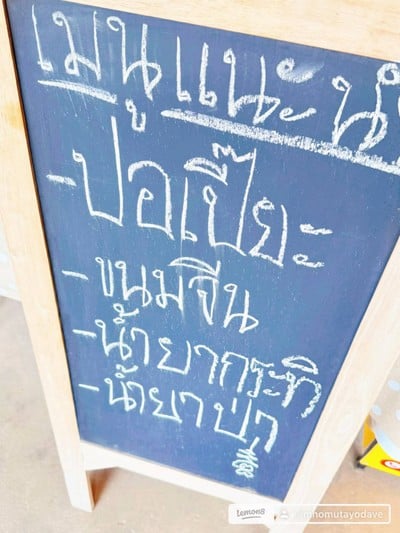 เมนูแนะนำ
-ปอเปี๊ยะ
-ขนมจีน
-น้ำยากะทิ
-น้ำยาป่า
Lemon8